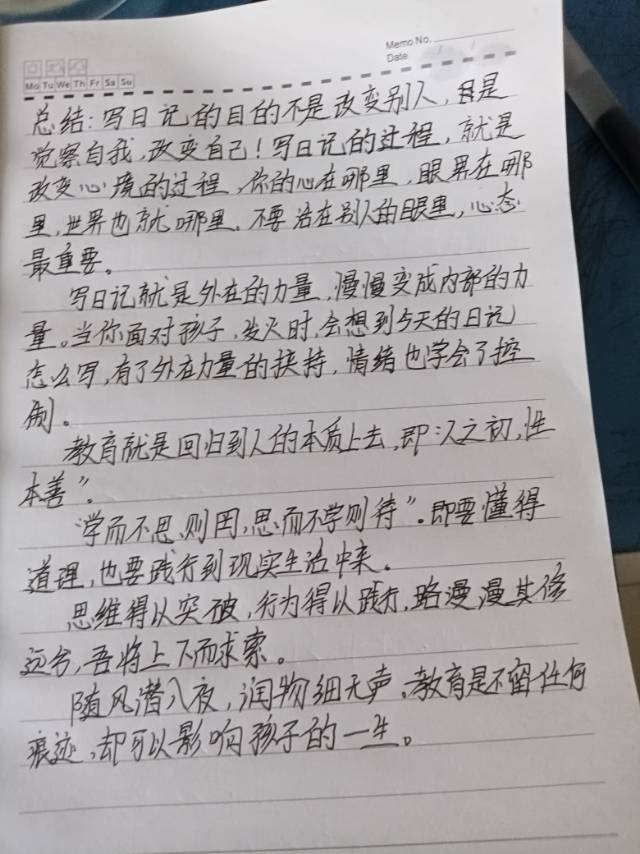 Memo No.
Date / /
Mo Tu We Th Fr Sa Su
总结:写日记的目的不是改变别人,而是
觉察自我,改变自己!写日记的过程,就是
改变心境的过程,你的心在哪里,眼界在哪
里,世界也就哪里。不要活在别人的眼里,心态
最重要。
写日记就是外在的力量,慢慢变成内部的力
量。当你面对孩子,发火时,会想到今天的日记
怎么写,有了外在力量的挟持,情绪也学会了控
制。
教育就是回归到人的本质上去,即:"人之初,性
本善"。
"学而不思则罔,思而不学则待"。即要懂得
道理,也要践行到现实生活中来。
思维得以突破,行为得以践行,路漫漫其修
远兮,吾将上下而求索。
随风潜入夜,润物细无声,教育是不留任何
痕迹,却可以影响孩子的一生。